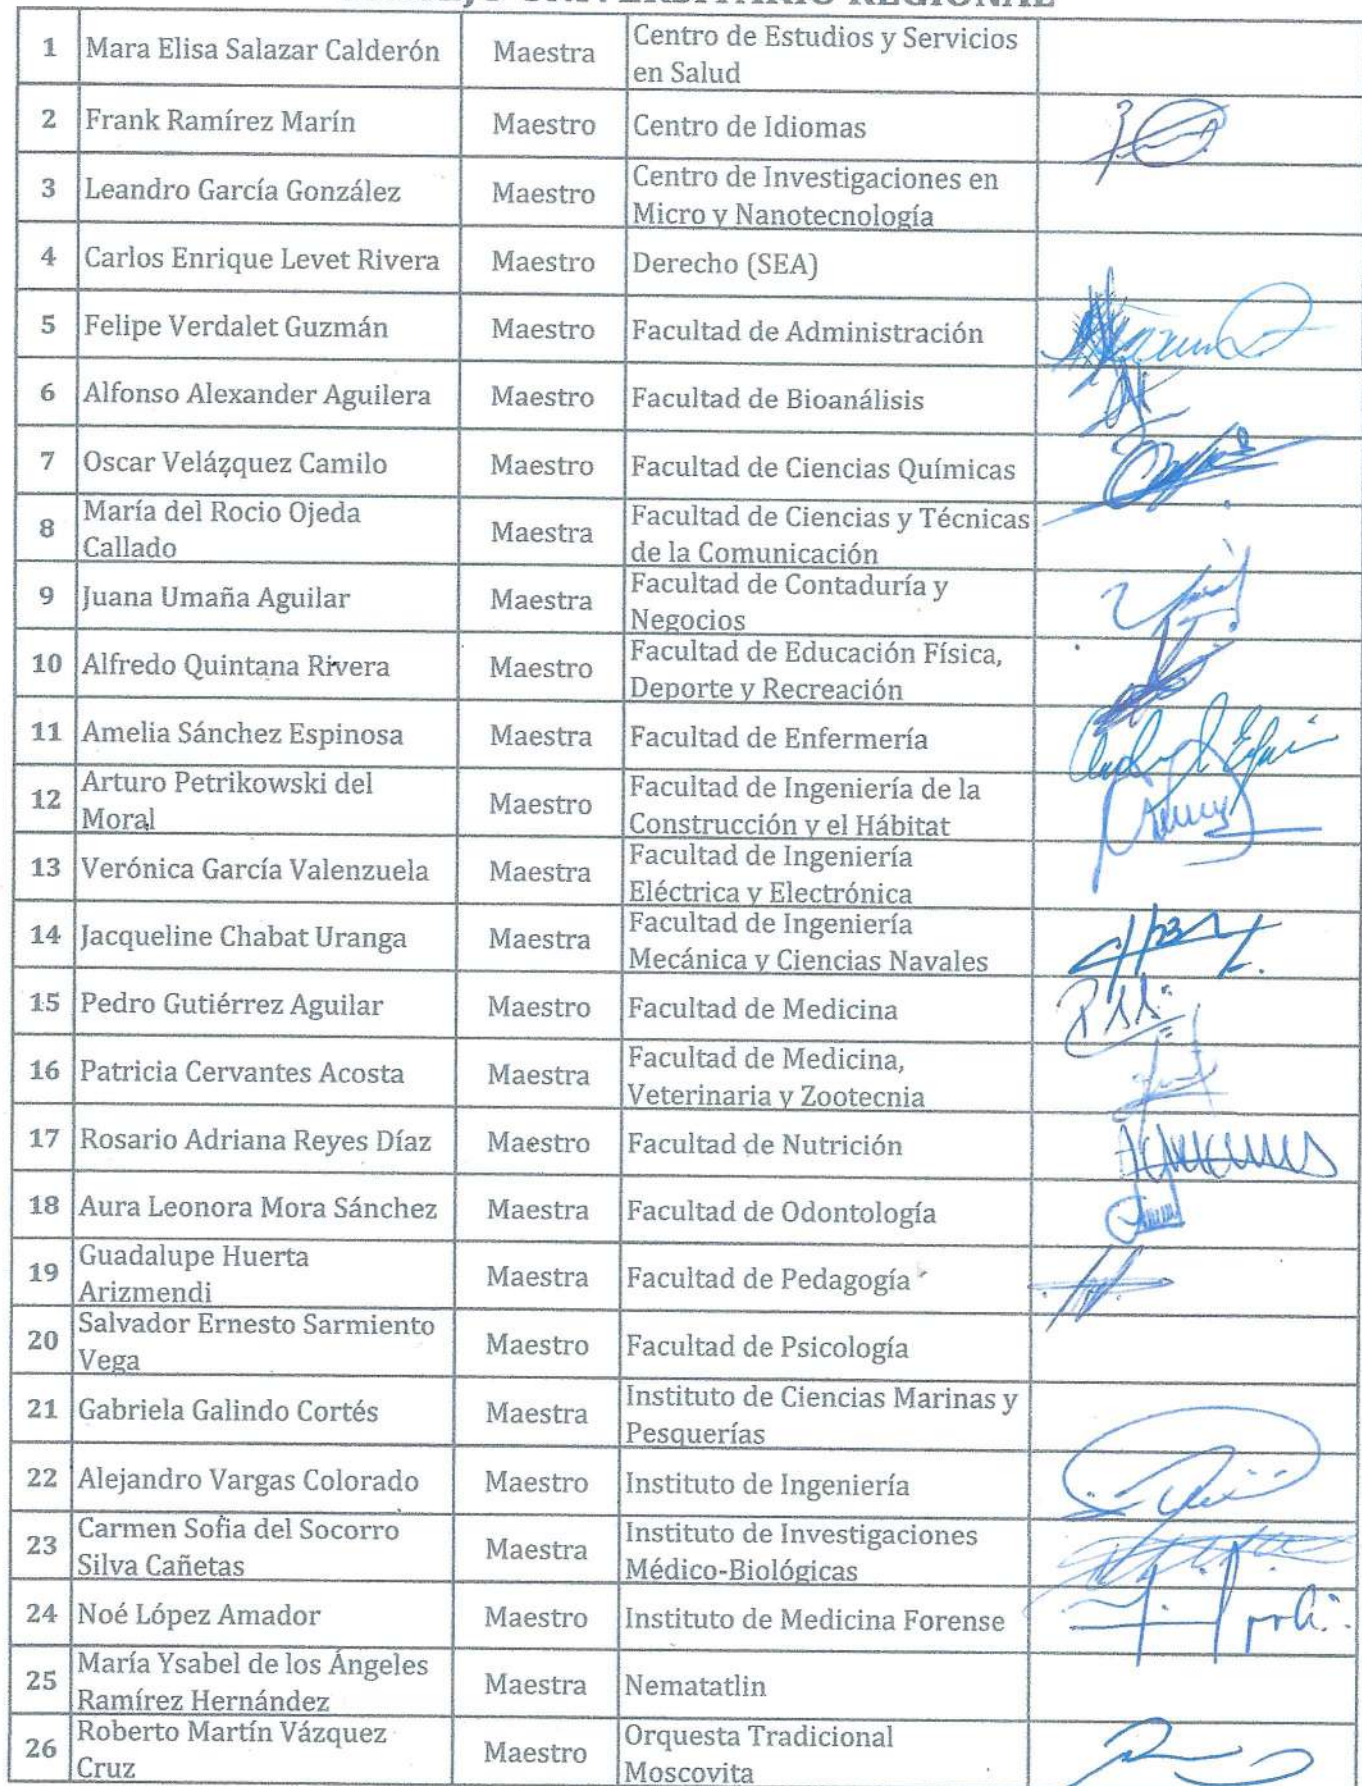 UNIVERSITARIO REGIONAL
1 Mara Elisa Salazar Calderón Maestra Centro de Estudios y Servicios
en Salud
2 Frank Ramírez Marín Maestro Centro de Idiomas
3 Leandro García González Maestro Centro de Investigaciones en
Micro y Nanotecnología
4 Carlos Enrique Levet Rivera Maestro Derecho (SEA)
5 Felipe Verdalet Guzmán Maestro Facultad de Administración
6 Alfonso Alexander Aguilera Maestro Facultad de Bioanálisis
7 Oscar Velázquez Camilo Maestro Facultad de Ciencias Químicas
8 María del Rocio Ojeda
Callado Maestra Facultad de Ciencias y Técnicas
de la Comunicación
9 Juana Umaña Aguilar Maestra Facultad de Contaduría y
Negocios
10 Alfredo Quintana Rivera Maestro Facultad de Educación Física,
Deporte y Recreación
11 Amelia Sánchez Espinosa Maestra Facultad de Enfermería
12 Arturo Petrikowski del
Moral Maestro Facultad de Ingeniería de la
Construcción y el Hábitat
13 Verónica García Valenzuela Maestra Facultad de Ingeniería
Eléctrica y Electrónica
14 Jacqueline Chabat Uranga Maestra Facultad de Ingeniería
Mecánica y Ciencias Navales
15 Pedro Gutiérrez Aguilar Maestro Facultad de Medicina
16 Patricia Cervantes Acosta Maestra Facultad de Medicina,
Veterinaria y Zootecnia
17 Rosario Adriana Reyes Díaz Maestro Facultad de Nutrición
18 Aura Leonora Mora Sánchez Maestra Facultad de Odontología
19 Guadalupe Huerta
Arizmendi Maestra Facultad de Pedagogía
20 Salvador Ernesto Sarmiento
Vega Maestro Facultad de Psicología
21 Gabriela Galindo Cortés Maestra Instituto de Ciencias Marinas y
Pesquerías
22 Alejandro Vargas Colorado Maestro Instituto de Ingeniería
23 Carmen Sofia del Socorro
Silva Cañetas Maestra Instituto de Investigaciones
Médico-Biológicas
24 Noé López Amador Maestro Instituto de Medicina Forense
25 María Ysabel de los Ángeles
Ramírez Hernández Maestra Nematatlin
26 Roberto Martín Vázquez
Cruz Maestro Orquesta Tradicional
Moscovita